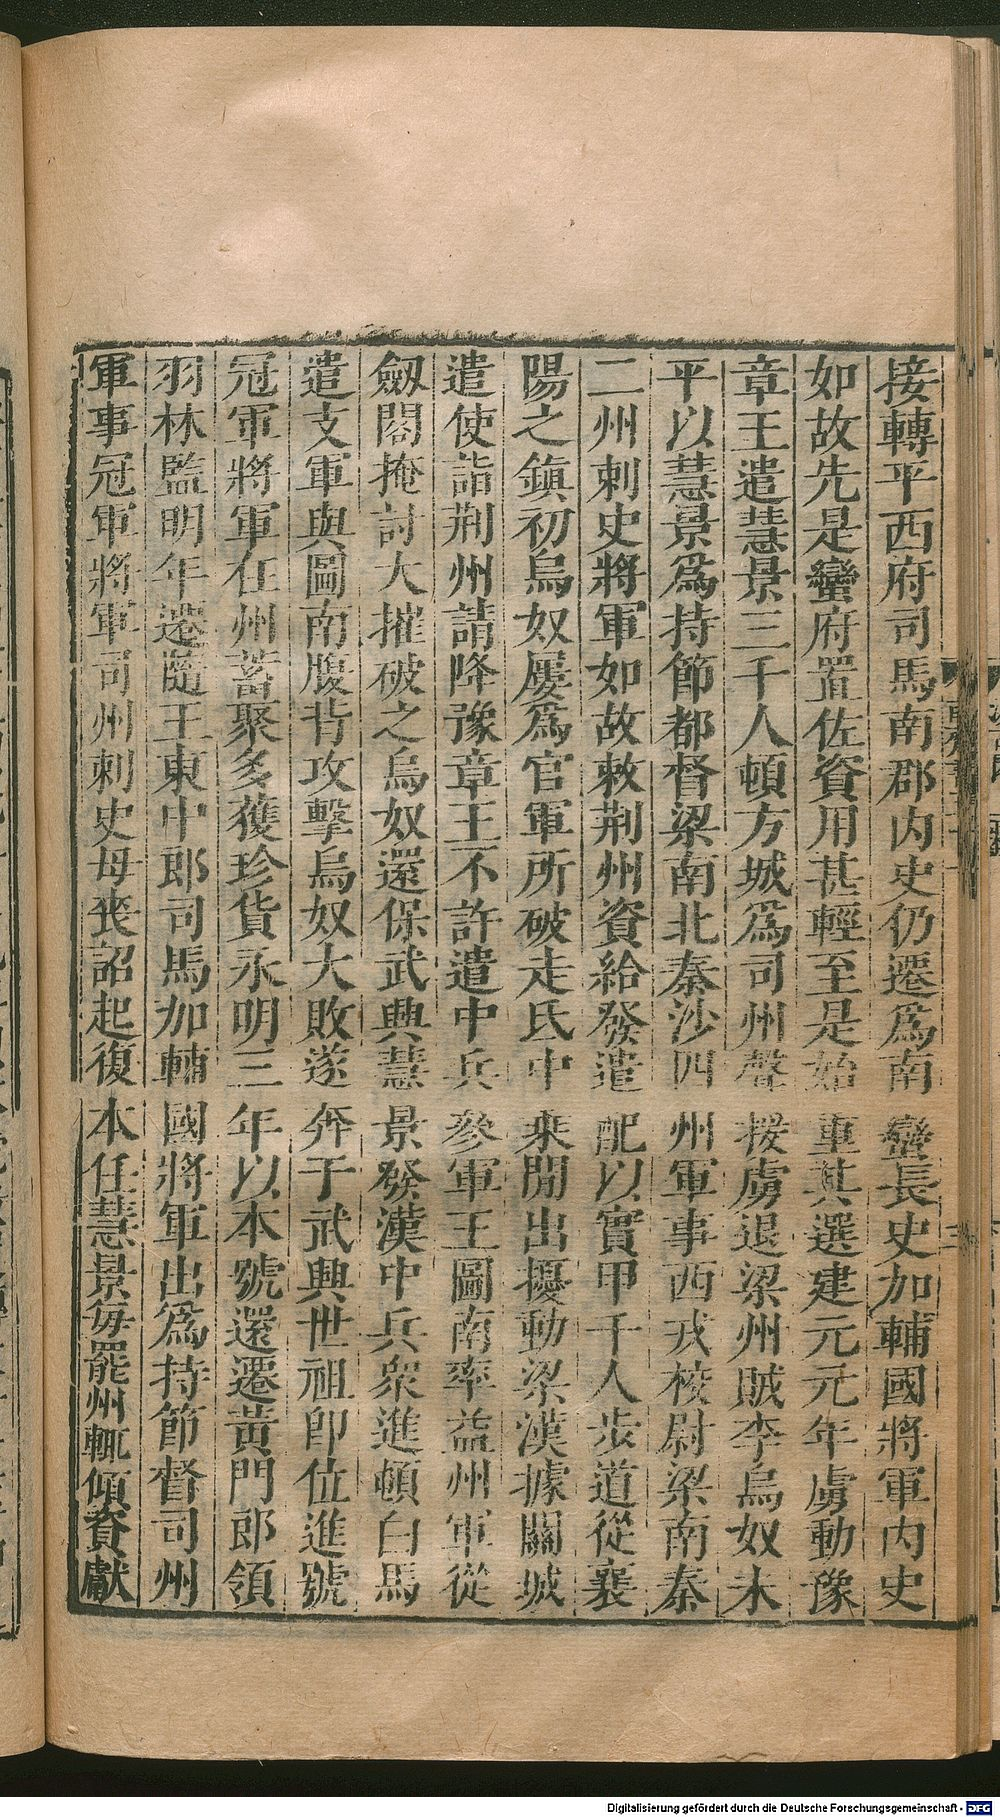 接轉平西府司馬南郡內史仍遷爲南蠻長史加輔國將軍內史
如故先是蠻府置佐資用甚輕至是始重其選建元元年虜動豫
章王遣慧景三千人頓方城爲司州聲援虜退梁州賊李烏奴未
平以慧景爲持節都督梁南北秦沙四州軍事西戎校尉梁南秦
二州刺史將軍如故敕荆州資給發遣配以實甲千人步道從襄
陽之鎮初烏奴屢爲官軍所破走氐中乘閒出擾動梁漢據關城
遣使詣荆州請降豫章王不許遣中兵參軍王圖南率益州軍從
劔閣掩討大摧破之烏奴還保武興慧景發漢中兵衆進頓白馬
遣支軍與圖南腹背攻擊烏奴大敗遂奔于武興世祖卽位進號
冠軍將軍在州蓄聚多獲珍貨永明三年以本號還遷黃門郎領
羽林監明年遷隨王東中郎司馬加輔國將軍出爲持節督司州
軍事冠軍將軍司州刺史母喪詔起復本任慧景每罷州輒傾資獻
Digitalisierung gefördert durch die Deutsche Forschungsgemeinschaft - DFG